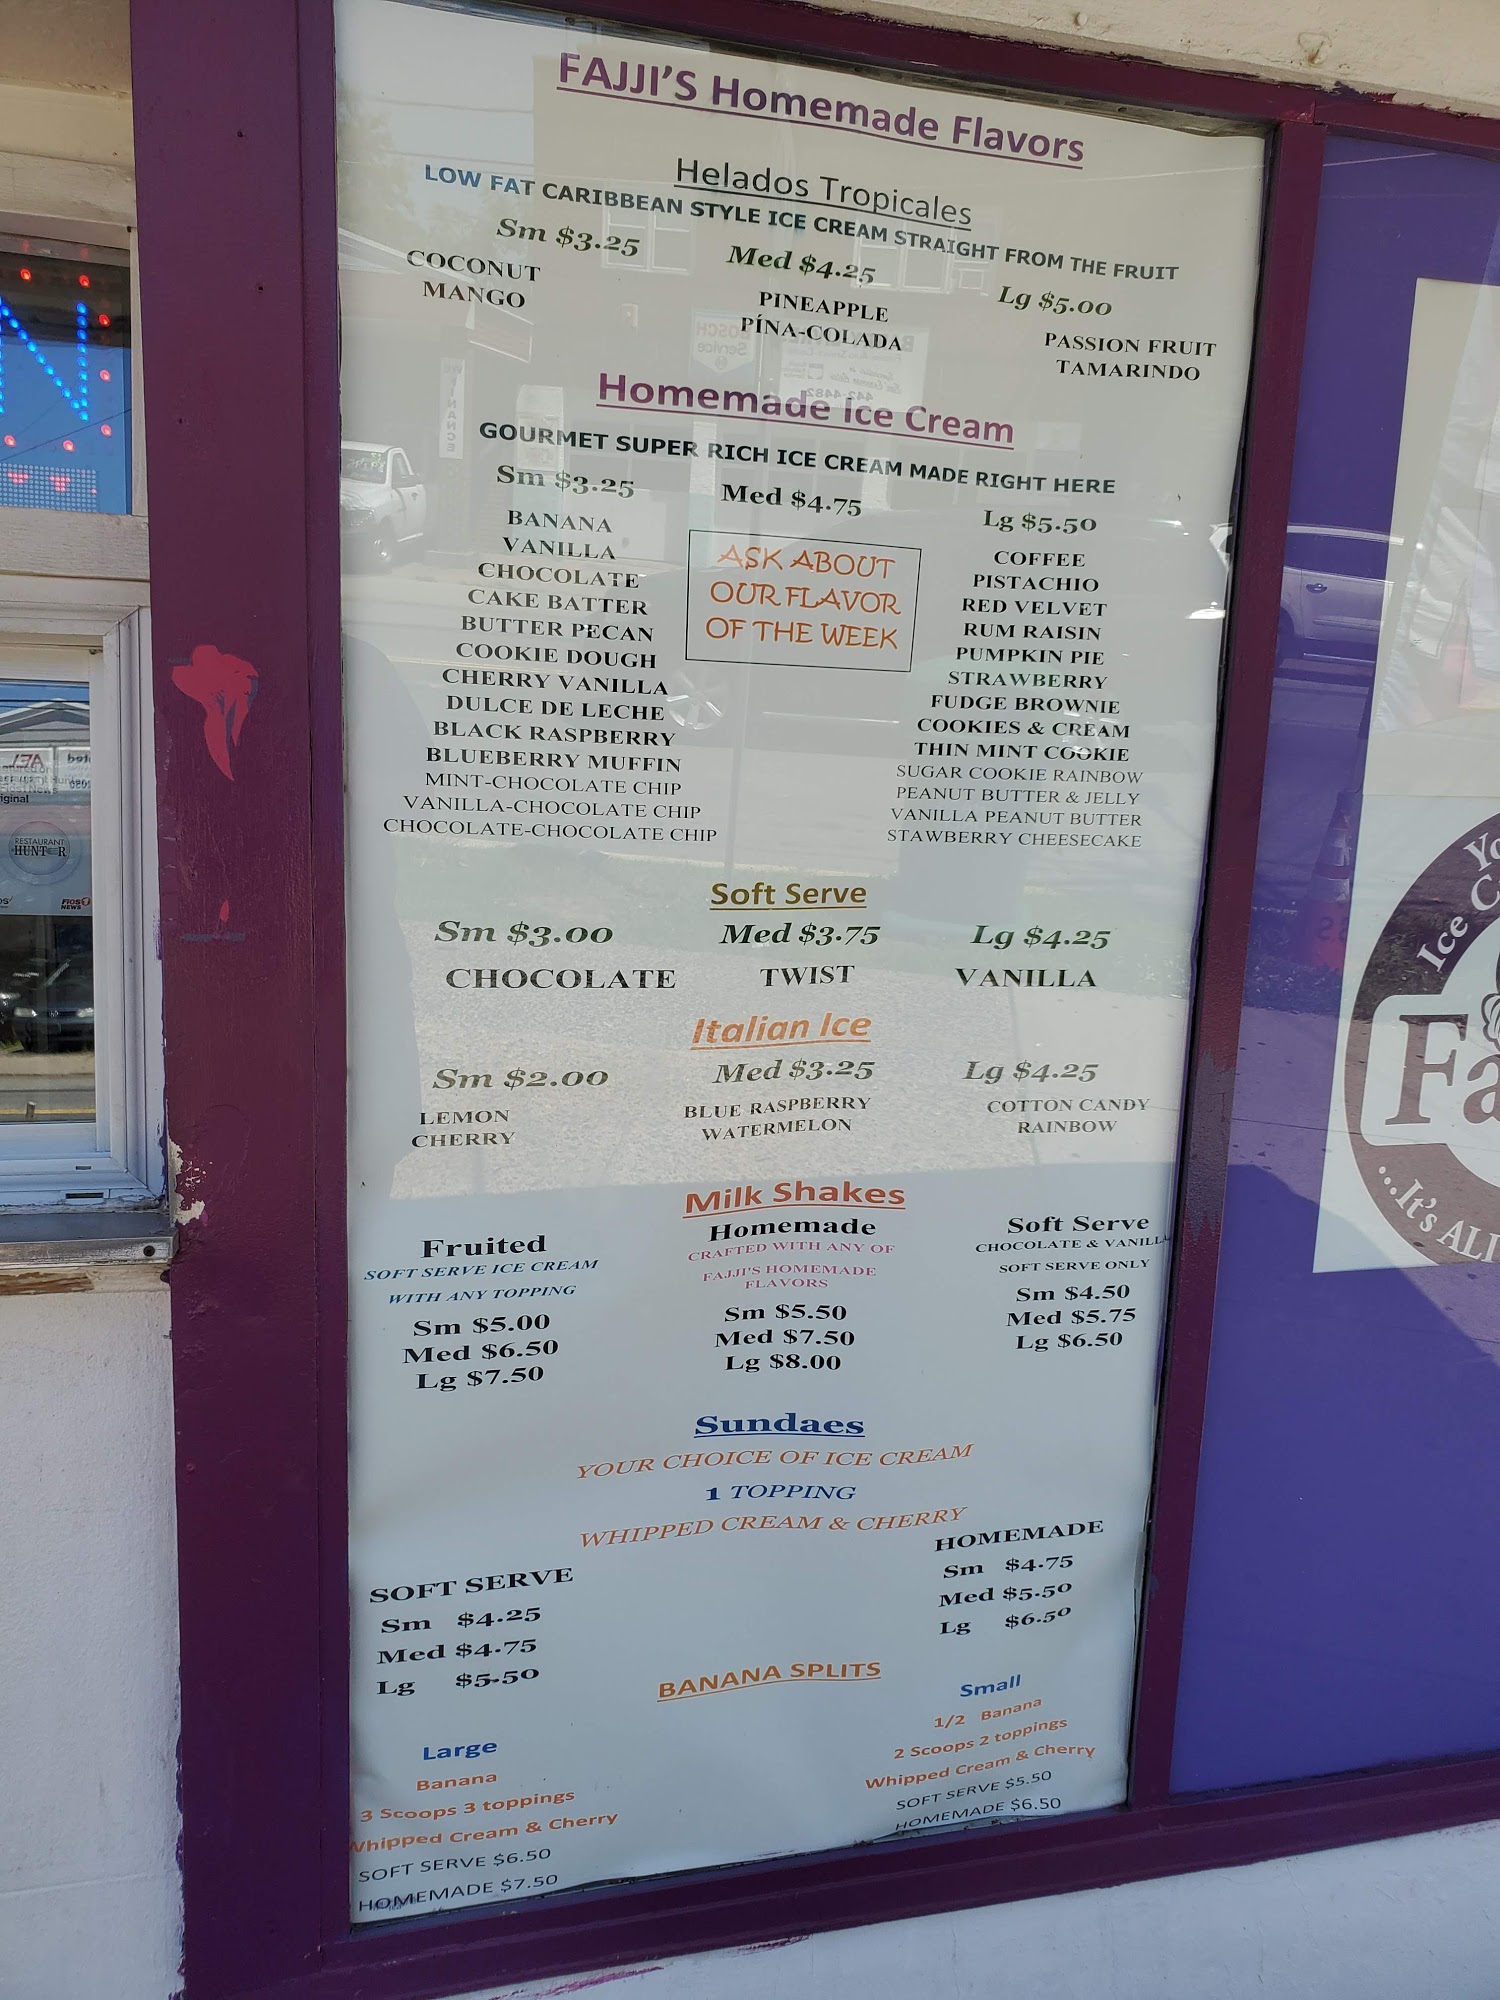 FAJJI'S Homemade Flavors
Helados Tropicales
LOW FAT CARIBBEAN STYLE ICE CREAM STRAIGHT FROM THE FRUIT
Sm $3.25 Med $4.25 Lg $5.00
COCONUT PINEAPPLE PASSION FRUIT
MANGO PÍNA-COLADA TAMARINDO
Homemade Ice Cream
GOURMET SUPER RICH ICE CREAM MADE RIGHT HERE
Sm $3.25 Med $4.75 Lg $5.50
BANANA
VANILLA
CHOCOLATE
CAKE BATTER
BUTTER PECAN
COOKIE DOUGH
CHERRY VANILLA
DULCE DE LECHE
BLACK RASPBERRY
BLUEBERRY MUFFIN
MINT-CHOCOLATE CHIP
VANILLA-CHOCOLATE CHIP
CHOCOLATE-CHOCOLATE CHIP
ASK ABOUT
OUR FLAVOR
OF THE WEEK
COFFEE
PISTACHIO
RED VELVET
RUM RAISIN
PUMPKIN PIE
STRAWBERRY
FUDGE BROWNIE
COOKIES & CREAM
THIN MINT COOKIE
SUGAR COOKIE RAINBOW
PEANUT BUTTER & JELLY
VANILLA PEANUT BUTTER
STAWBERRY CHEESECAKE
Soft Serve
Sm $3.00 Med $3.75 Lg $4.25
CHOCOLATE TWIST VANILLA
Italian Ice
Sm $2.00 Med $3.25 Lg $4.25
LEMON BLUE RASPBERRY COTTON CANDY
CHERRY WATERMELON RAINBOW
Milk Shakes
Fruited
SOFT SERVE ICE CREAM
WITH ANY TOPPING
Sm $5.00
Med $6.50
Lg $7.50
Homemade
CRAFTED WITH ANY OF
FAJJI'S HOMEMADE
FLAVORS
Sm $5.50
Med $7.50
Lg $8.00
Soft Serve
CHOCOLATE & VANILLA
SOFT SERVE ONLY
Sm $4.50
Med $5.75
Lg $6.50
Sundaes
YOUR CHOICE OF ICE CREAM
1 TOPPING
WHIPPED CREAM & CHERRY
SOFT SERVE
Sm $4.25
Med $4.75
Lg $5.50
HOMEMADE
Sm $4.75
Med $5.50
Lg $6.50
BANANA SPLITS
Large
Banana
3 Scoops 3 toppings
Whipped Cream & Cherry
SOFT SERVE $6.50
HOMEMADE $7.50
Small
1/2 Banana
2 Scoops 2 toppings
Whipped Cream & Cherry
SOFT SERVE $5.50
HOMEMADE $6.50
RESTAURANT
HUNTER
FIOS
NEWS
Ice
Fa
...It's